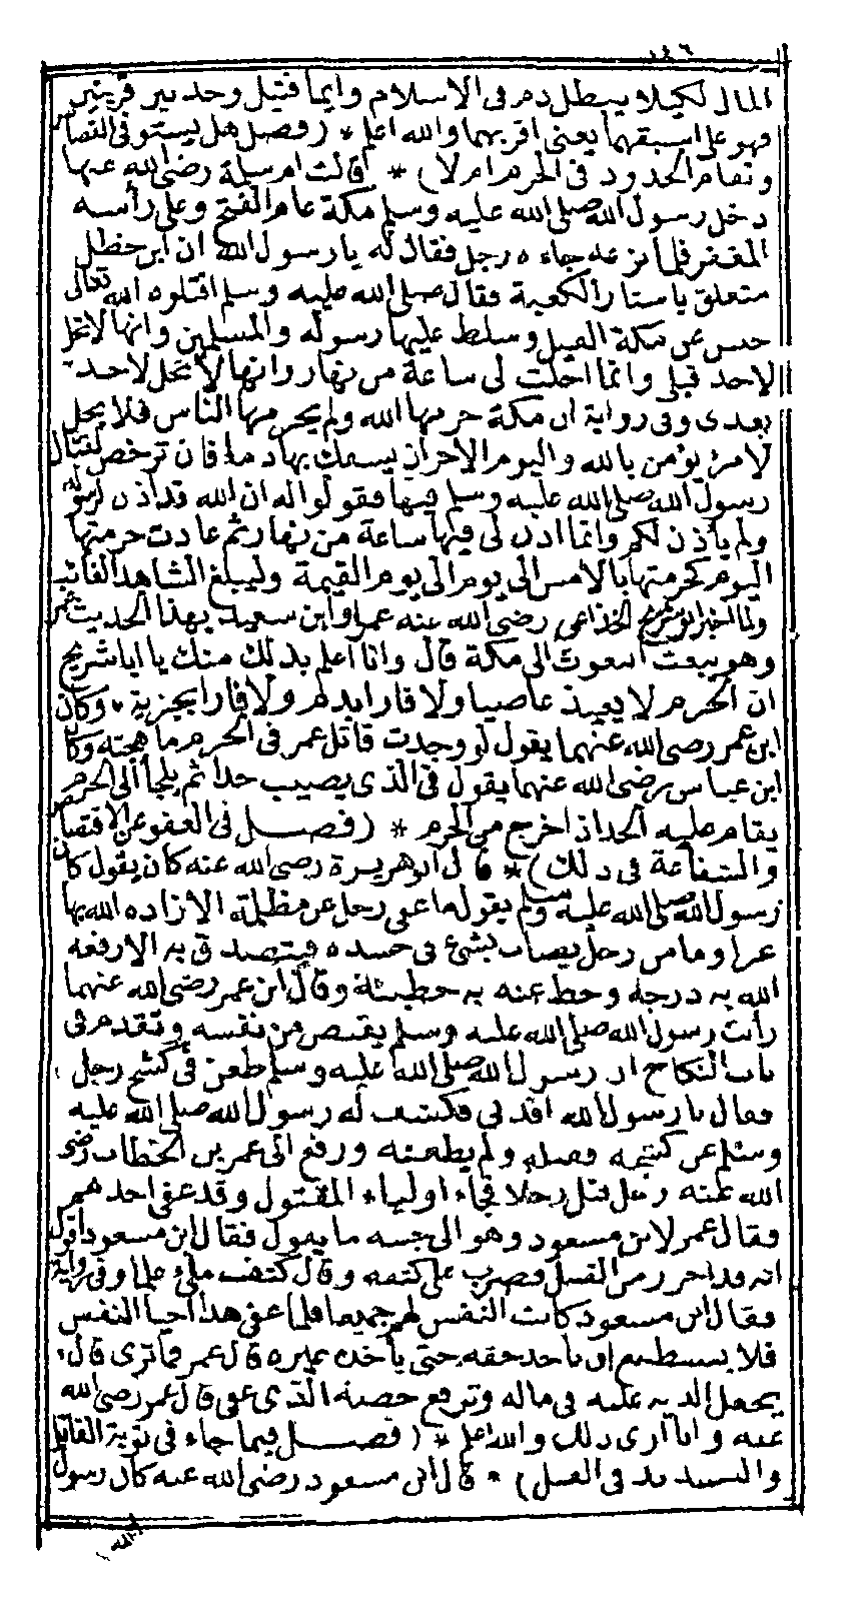 ١٤٦
المال لكيلا يبطل دم فى الاسلام وايما قتيل وجد بين قريتين
فهو على اسبقهما يعنى اقربهما والله اعلم * (فصل هل يستوفى القصاص
وتقام الحدود فى الحرم ام لا) * قالت ام سلمة رضى الله عنها
دخل رسول الله صلى الله عليه وسلم مكة عام الفتح وعلى رأسه
المغفر فلما نزعه جاءه رجل فقال له يا رسول الله ان ابن خطل
متعلق باستار الكعبة فقال صلى الله عليه وسلم اقتلوه ان الله تعالى
حبس عن مكة الفيل وسلط عليها رسوله والمسلمين وانها لا تحل
لاحد قبلى وانما احلت لى ساعة من نهار وانها لا تحل لاحد
بعدى وفى رواية ان مكة حرمها الله ولم يحرمها الناس فلا يحل
لامرئ يؤمن بالله واليوم الاخر ان يسفك بها دما فان ترخص لقتال
رسول الله صلى الله عليه وسلم فيها فقولوا له ان الله قد اذن لرسوله
ولم يأذن لكم وانما اذن لى فيها ساعة من نهار ثم عادت حرمتها
اليوم كحرمتها بالامس الى يوم الى يوم القيمة وليبلغ الشاهد الغائب
ولما اخبر ابو شريح الخذاعى رضى الله عنه عمرو ابن سعيد بهذا الحديث
وهو يبعث البعوث الى مكة قال وانا اعلم بذلك منك يا ابا شريح
ان الحرم لا يعيذ عاصيا ولا فارا بدم ولا فارا بجزية * وكان
ابن عمر رضى الله عنهما يقول لو وجدت قاتل عمر فى الحرم ما هجته وكان
ابن عباس رضى الله عنهما يقول فى الذى يصيب حدا ثم يلجأ الى الحرم
يقام عليه الحد اذا خرج من الحرم * (فصل فى العفو عن الاقتصاص
والشفاعة فى ذلك) * قال ابو هريرة رضى الله عنه كان يقول كان
رسول الله صلى الله عليه وسلم يقول ما عفى رجل عن مظلمة الا زاده الله بها
عزا وما من رجل يصاب بشئ فى جسده فيتصدق به الا رفعه
الله به درجة وحط عنه به خطيئة وقال ابن عمر رضى الله عنهما
رأيت رسول الله صلى الله عليه وسلم يقتص من نفسه وتقدم فى
باب النكاح ان رسول الله صلى الله عليه وسلم طعن فى كشح رجل
فقال يا رسول الله اقدنى فكشف له رسول الله صلى الله عليه
وسلم عن كشحه فقبله ولم يطعنه ورفع الى عمر بن الخطاب رضى
الله عنه رجل قتل رجلا فجاء اولياء المقتول وقد عفى احدهم
فقال عمر لابن مسعود وهو الى جنبه ما تقول فقال ابن مسعود اقول
انه قد احرز من القتل فضرب على كتفه وقال كنيف ملئ علما وفى رواية
فقال ابن مسعود كانت النفس لهم جميعا فلما عفى هذا احيا النفس
فلا يستطيع ان ياخذ حقه حتى يأخذ غيره قال عمر فما ترى قال
يجعل الدية عليه فى ماله وترفع حصة الذى عفى قال عمر رضى الله
عنه وانا ارى ذلك والله اعلم * (فصل فيما جاء فى توبة القاتل
والتشديد فى القتل) * قال ابن مسعود رضى الله عنه كان رسول
الله